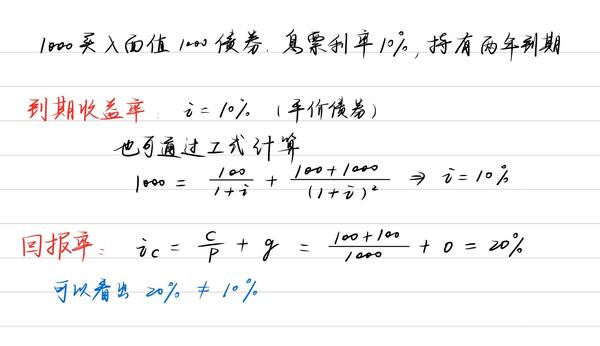 1000买入面值1000债券.息票利率10%,持有两年到期
到期收益率: i=10% (平价债券)
也可通过工式计算
1000 = 100/(1+i) + (100+1000)/(1+i)² ⇒ i=10%
回报率: ic = C/P + g = (100+100)/1000 + 0 = 20%
可以看出 20% ≠ 10%